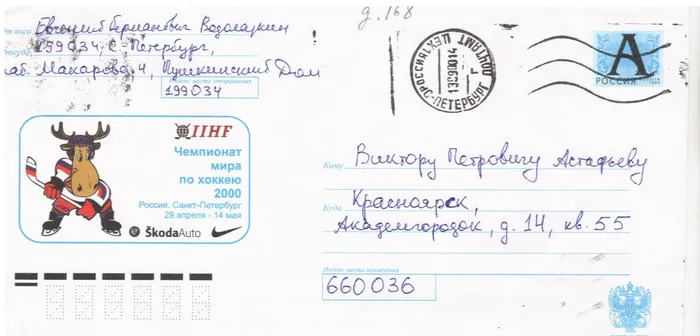 д. 168
От кого Евгений Германович Водолазкин
Откуда 199034, С-Петербург,
наб. Макарова 4, Пушкинский Дом
Индекс места отправления
199034
А
РОССИЯ
IIHF
Чемпионат
мира
по хоккею
2000
Россия. Санкт-Петербург
29 апреля - 14 мая
ŠkodaAuto
Кому Виктору Петровичу Астафьеву
Куда Красноярск,
Академгородок, д. 14, кв. 55
Индекс места назначения
660036